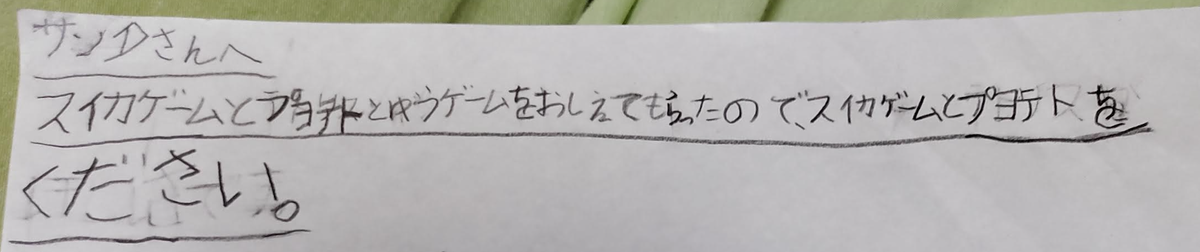 サンタさんへ
スイカゲームとプヨテトとゆうゲームをおしえてもらったので、スイカゲームとプヨテトを
ください。